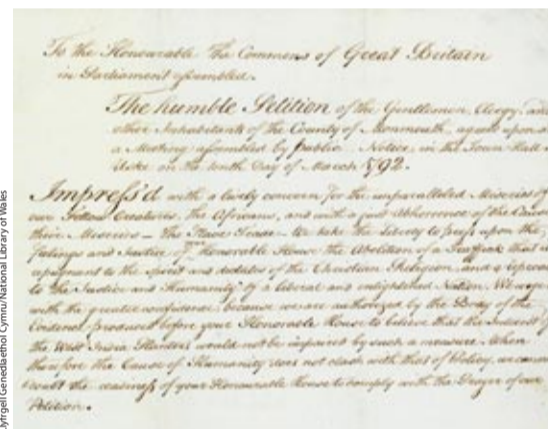 To the Honourable the Commons of Great Britain
in Parliament assembled.
The humble Petition of the Gentlemen, Clergy, and
other Inhabitants of the County of Monmouth, agreed upon at
a Meeting assembled by public Notice, in the Town Hall
Uske on the tenth Day of March 1792.
Impress'd with a lively concern for the unparalleled Miseries of
our Fellow Creatures, the Africans, and with a just Abhorrence of the Cause
their Miseries — The Slave Trade — We take the Liberty to press upon the
feelings and Justice of your Honorable House the Abolition of a Traffick that is
repugnant to the spirit and dictates of the Christian Religion, and a reproach
to the Justice and Humanity of a liberal and enlightened Nation. We urge
with the greater confidence, because we are authorized by the Body of the
Evidence produced before your Honorable House to believe that the Interest of
the West India Planters would not be impaired by such a measure. When
therefore the Cause of Humanity does not clash with that of Policy, we cannot
doubt the readiness of your Honourable House to comply with the Prayer of our
Petition.
Llyfrgell Genedlaethol Cymru/National Library of Wales